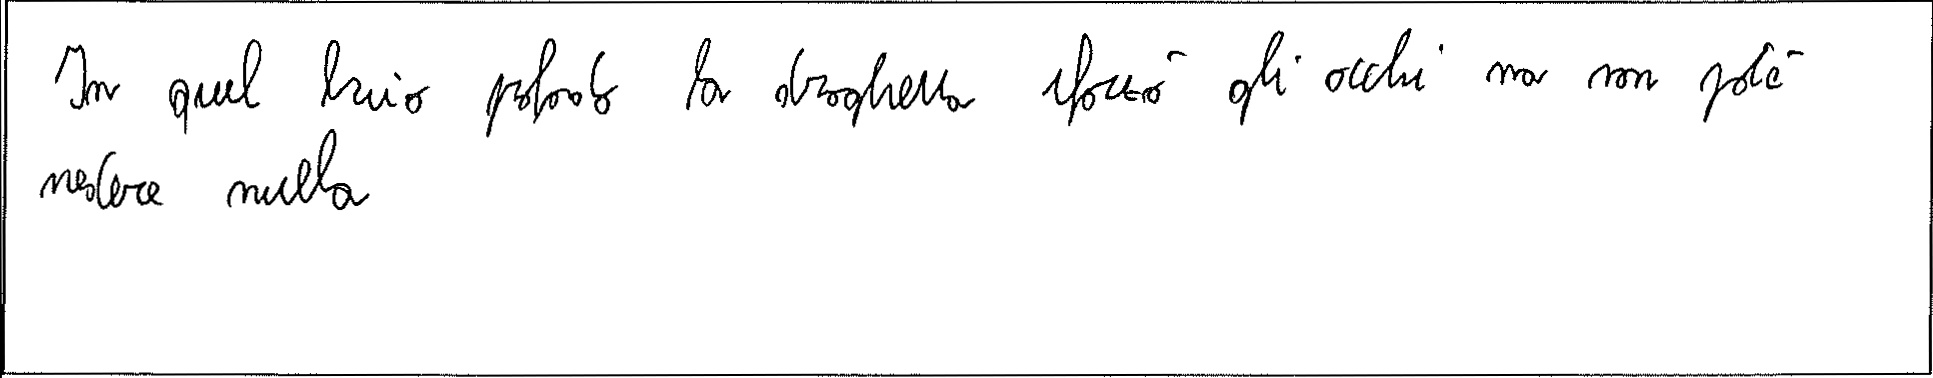 In quel buio profondo la draghetta sforzò gli occhi ma non poté
vedere nulla